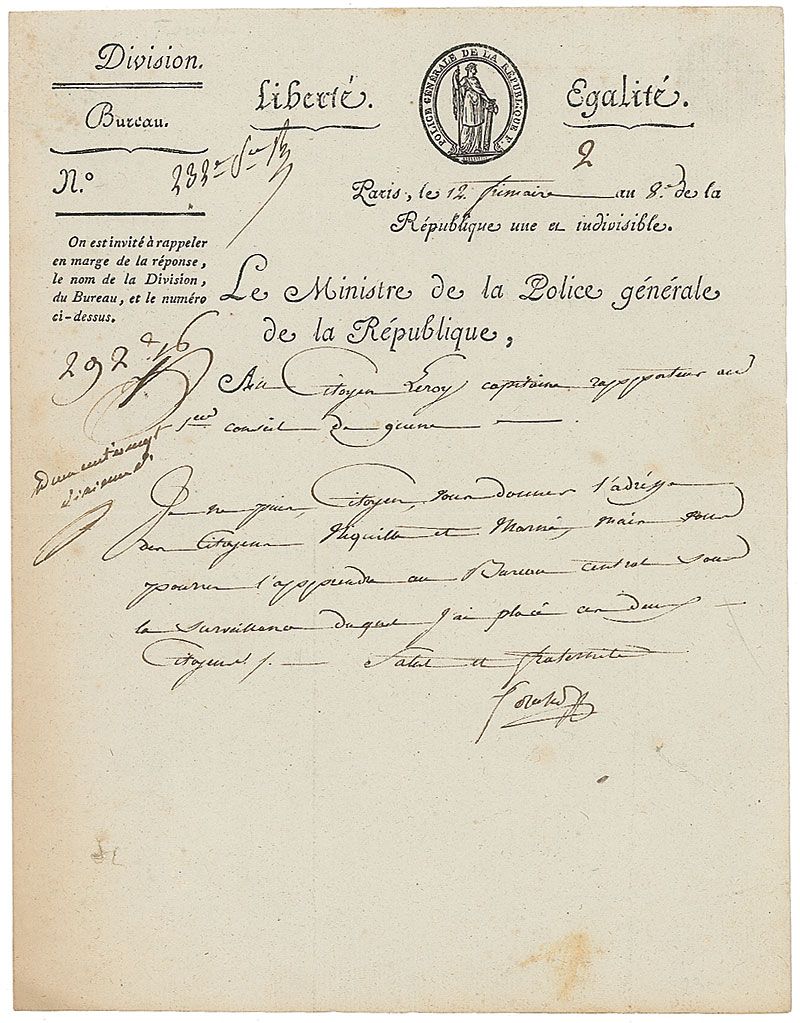 Division.
Bureau.
N.º
On est invité à rappeler
en marge de la réponse,
le nom de la Division,
du Bureau, et le numéro
ci-dessus.
Liberté.
POLICE GÉNÉRALE DE LA RÉPUBLIQUE F.
Egalité.
2
Paris, le 12 frimaire an 8.e de la
République une et indivisible.
Le Ministre de la Police générale
de la République,
Au Citoyen Leroy capitaine rapporteur au
conseil de guerre
Je ne puis, Citoyen, vous donner l'adresse
des Citoyens et mais vous
pourrez l'apprendre au Bureau central sous
la surveillance duquel j'ai placé ces deux
Citoyens. Salut et fraternité